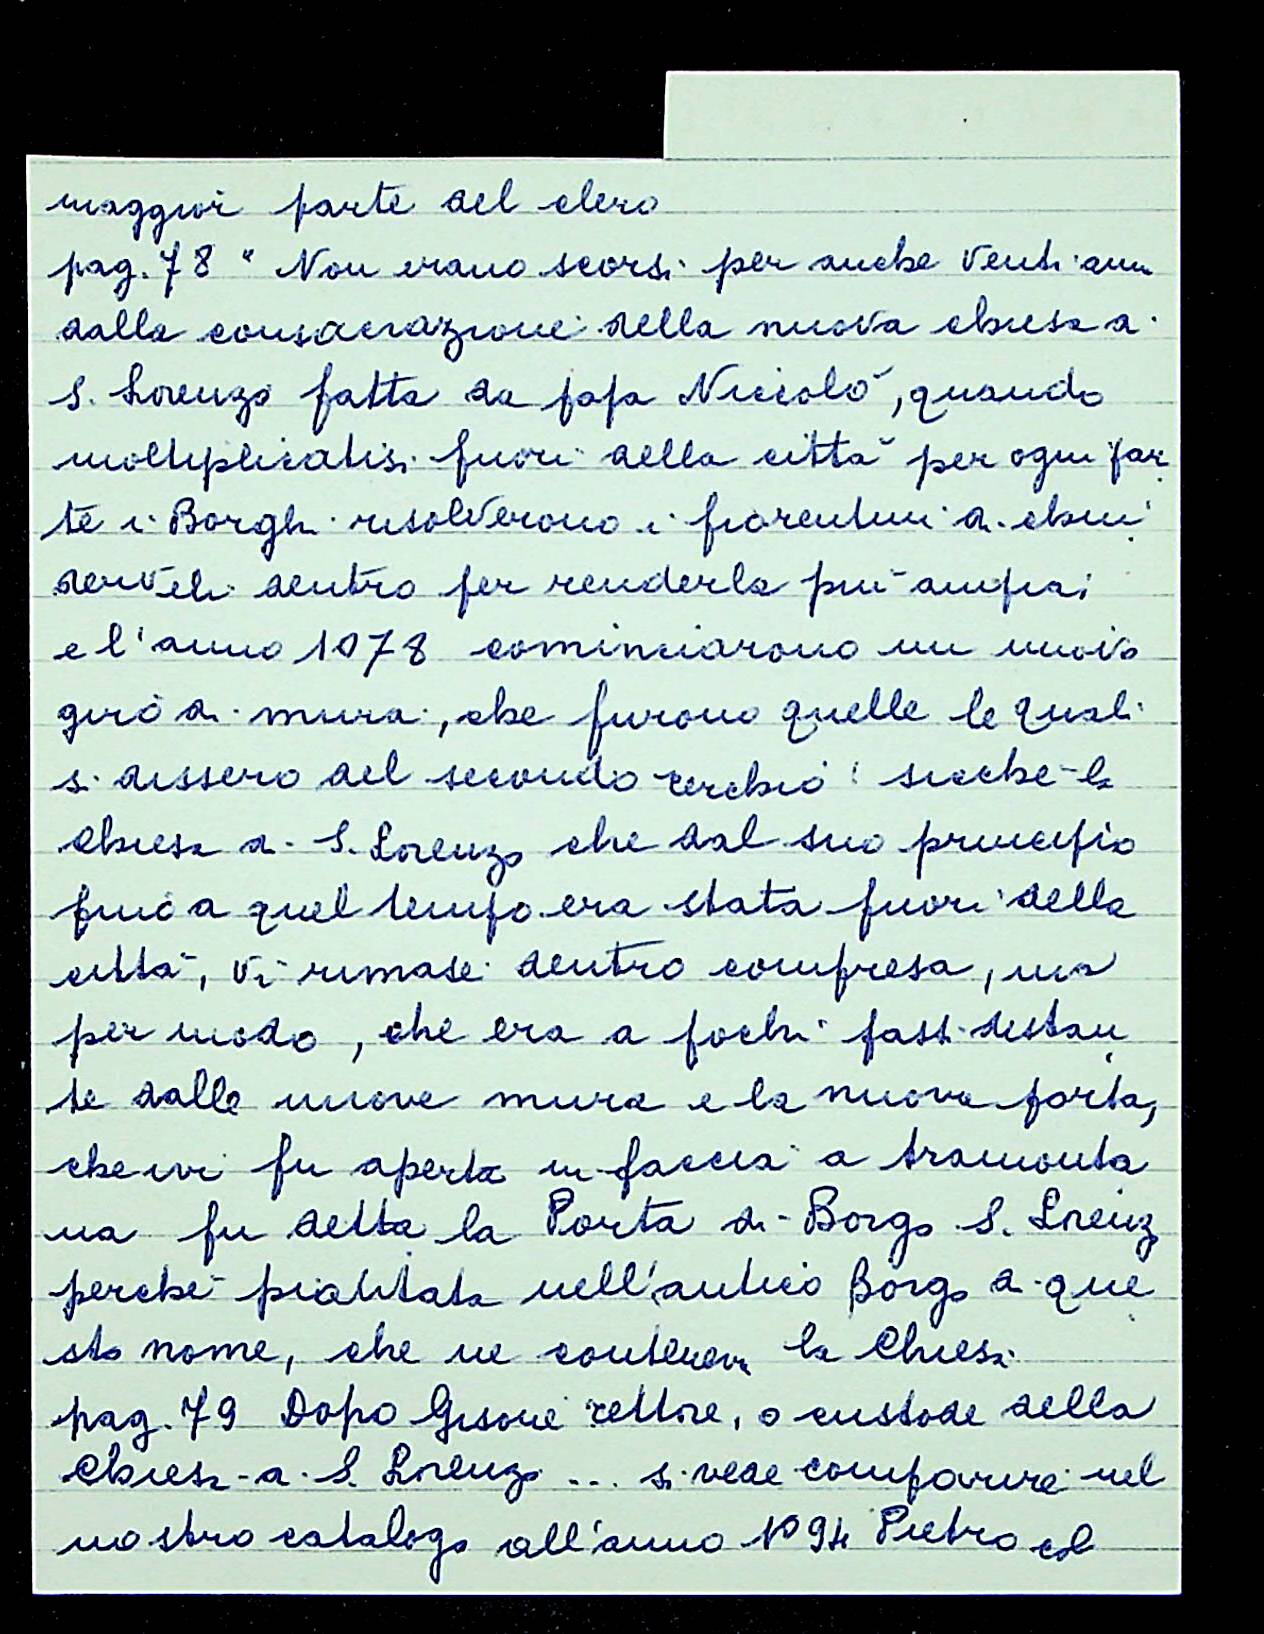 maggior parte del clero
pag. 78 " Non erano scorsi per anche venti anni
dalla consacrazione della nuova chiesa di
S. Lorenzo fatta da papa Niccolò, quando
moltiplicatisi fuori della città per ogni par
te i Borghi risolverono i fiorentini di chiu
derveli dentro per renderla più ampia;
e l'anno 1078 cominciarono un nuovo
giro di mura, che furono quelle le quali
si dissero del secondo cerchio: sicchè la
Chiesa di S. Lorenzo che dal suo principio
fino a quel tempo era stata fuori della
città, vi rimase dentro compresa, ma
per modo, che era a pochi passi distan
te dalle nuove mura e la nuova porta,
che ivi fu aperta in faccia a tramonta
na fu detta la Porta di Borgo S. Lorenz
perchè piantata nell'antico Borgo di que
sto nome, che ne conteneva la Chiesa
pag. 79 Dopo Gisone rettore, o custode della
Chiesa di S. Lorenzo ... si vede comparire nel
nostro catalogo all'anno 1094 Pietro col